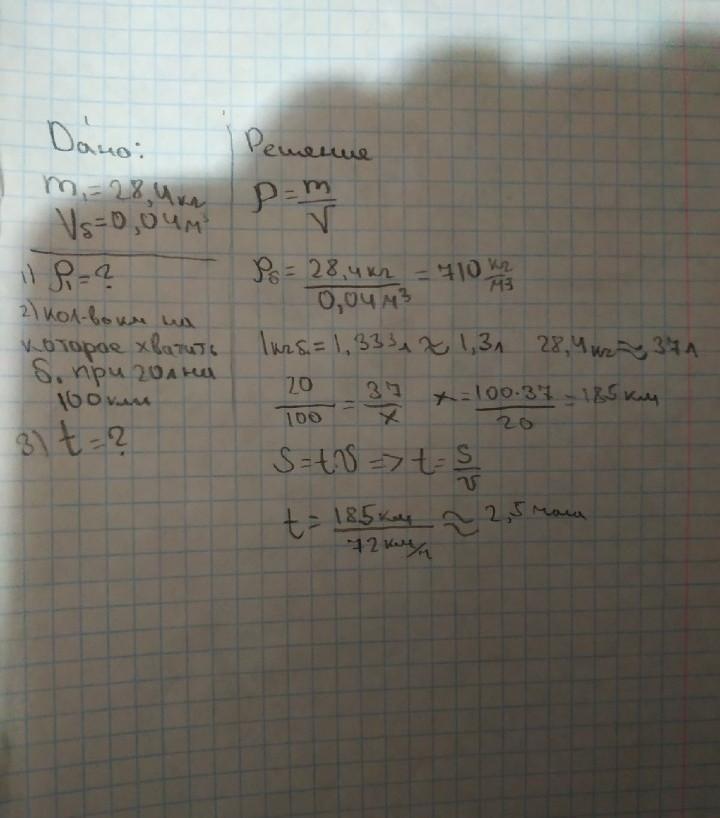 Дано:
m₁ = 28,4 кг
Vб = 0,04 м³
1) ρ₁ = ?
2) кол-во км на
которое хватить
б. при 20л на
100 км
3) t = ?
Решение
ρ = m/V
ρб = 28,4 кг / 0,04 м³ = 710 кг/м³
1 кг б. = 1,333л ≈ 1,3л 28,4 кг ≈ 37 л
20/100 = 37/x x = 100·37/20 = 185 км
S = t·υ => t = S/υ
t = 185 км / 72 км/ч ≈ 2,5 часа